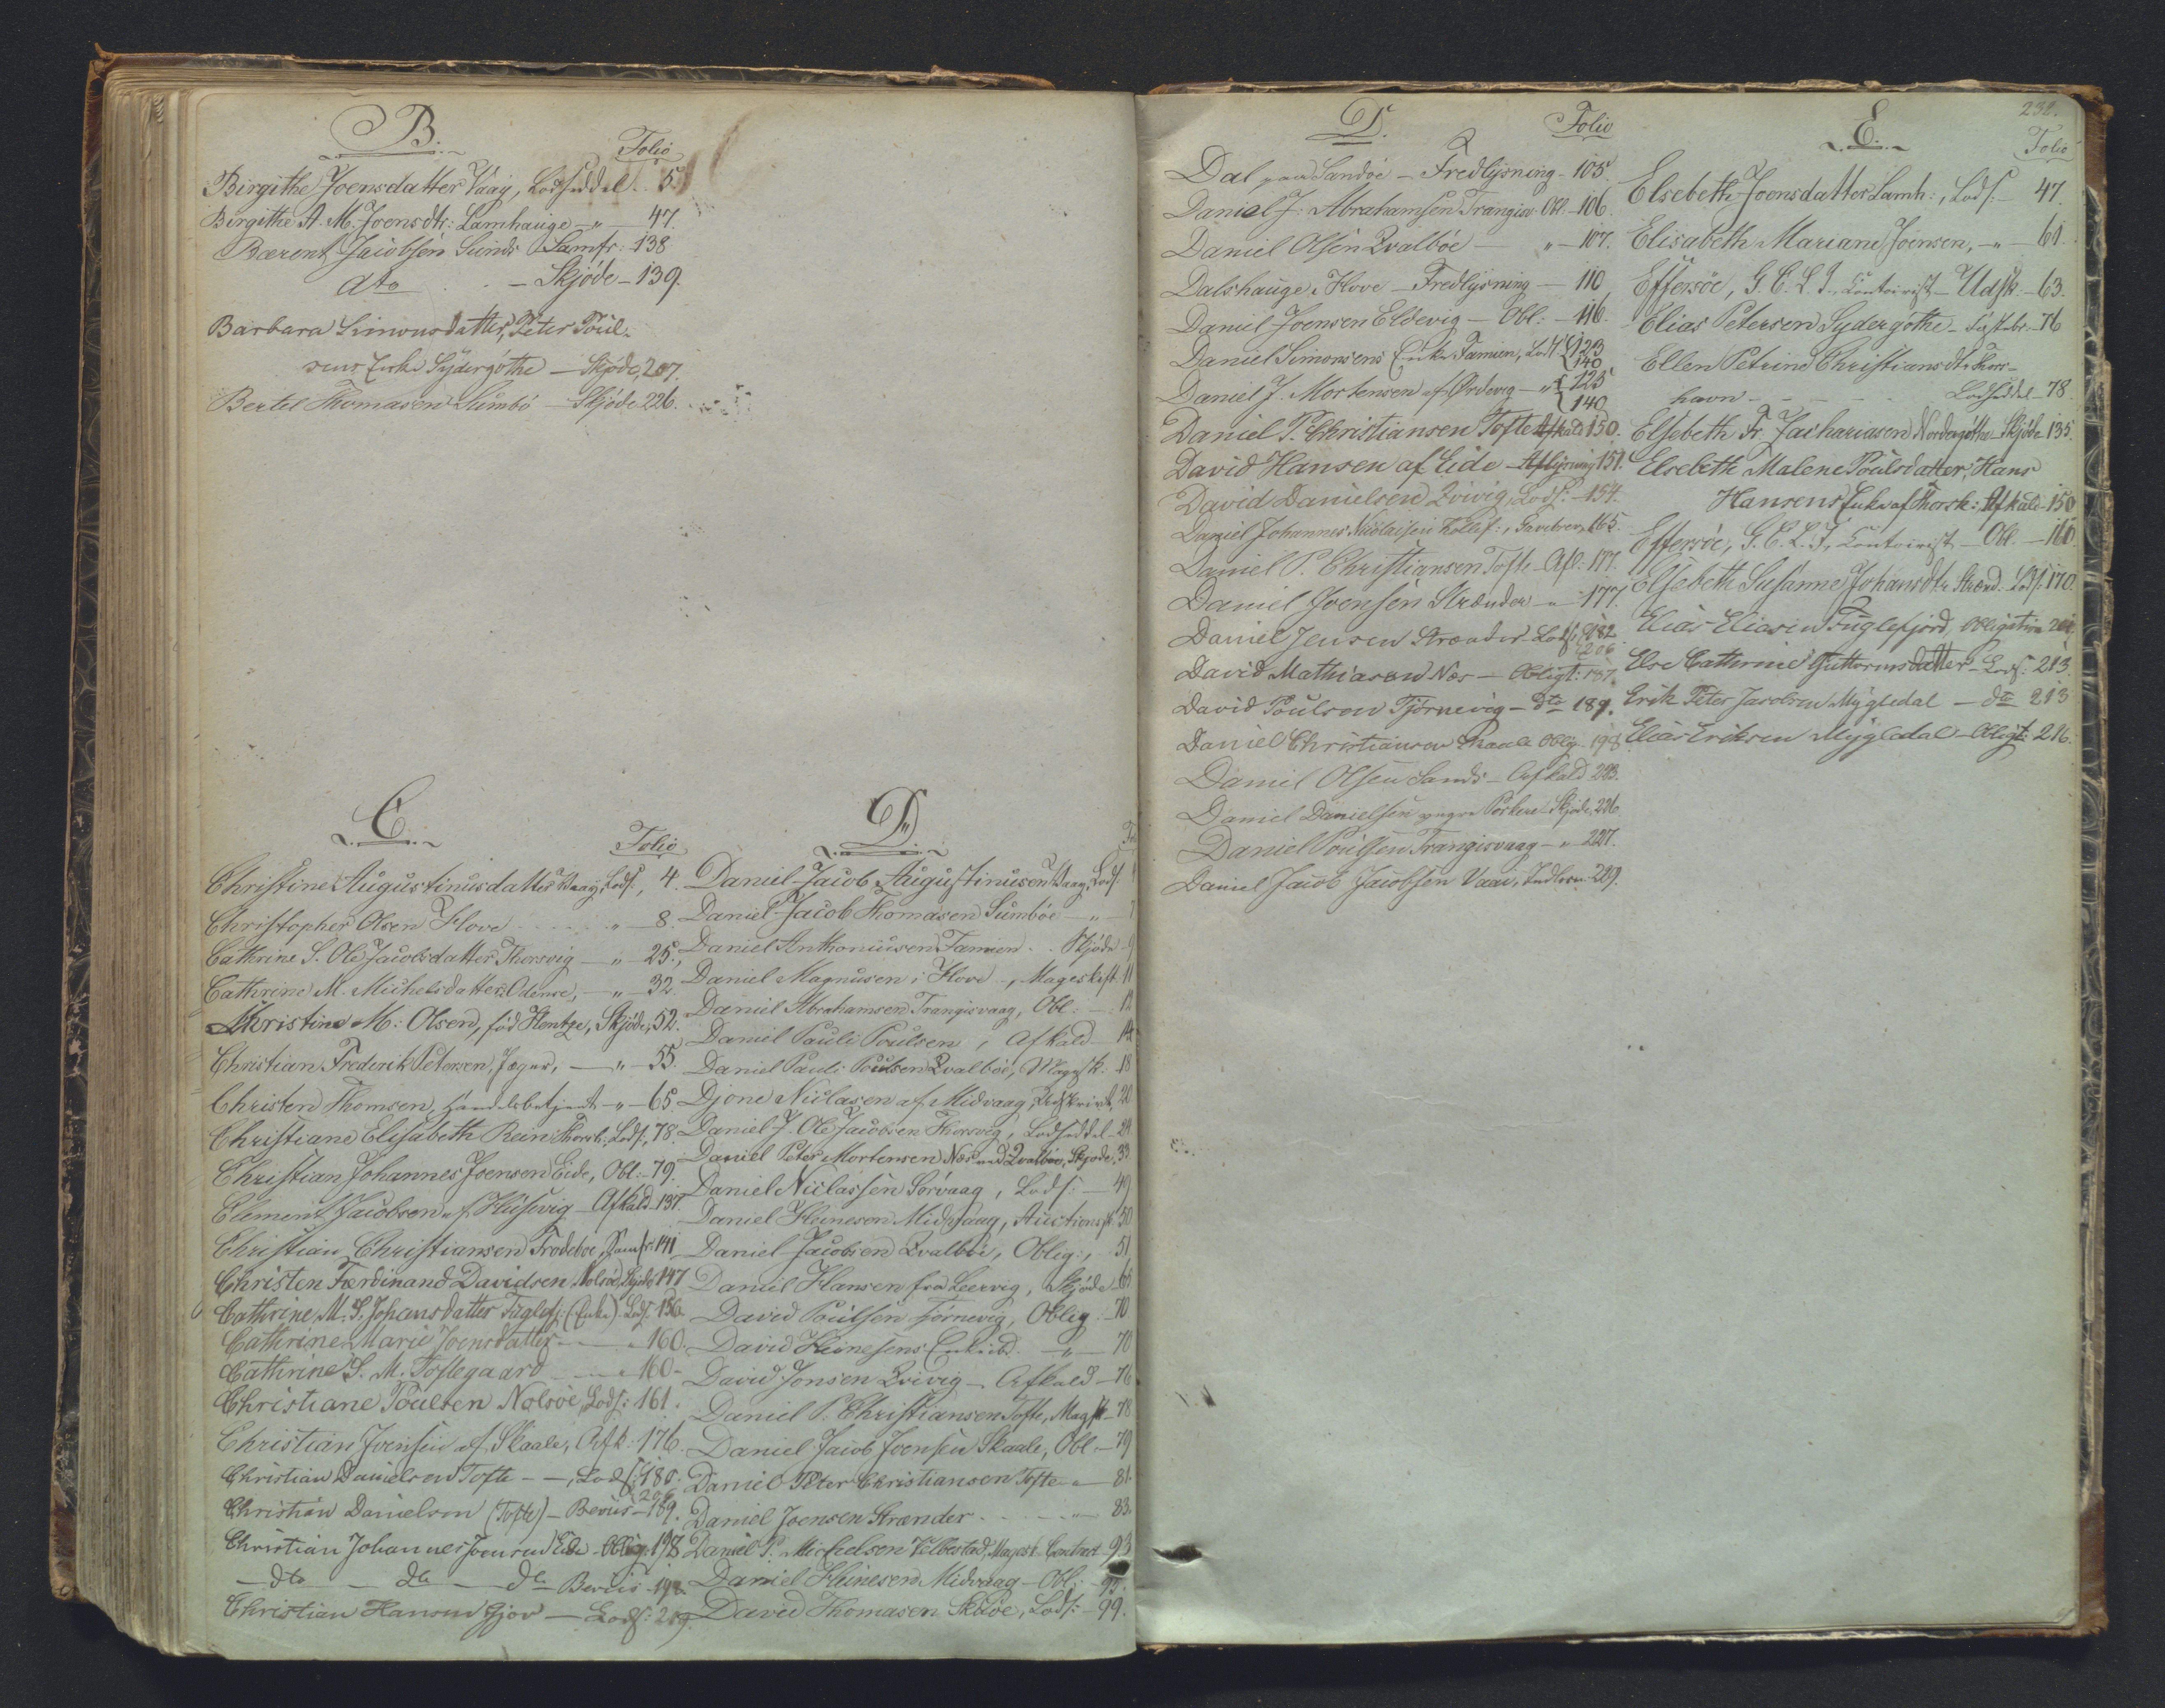 B.
Folio
Birgithe Joensdatter Vaag, Lodseddel . . 5.
Birgithe A. M. Joensdtr: Lamhauge — " — 47.
Bærent Jacobsen Sunds Samfr: 138
dto . . — Skjöde — 139.
Barbara Simonsdatter, Peter Poul-
sens Enke Sydergöthe — Skjöde, 207.
Bertel Thomasen Sumbö — Skjöde 226.
C.
Folio
Christine Augustinusdatter Vaag, Lods:, 4.
Christopher Olsen Hove . . . . . " — 8.
Cathrine S. Ole Jacobsdatter Thorsvig — " — 25.
Cathrine M. Michelsdatter Odense, — " — 32.
Christine M: Olsen, född Hentze, Skjöde, 52.
Christian Frederik Petersen, Jæger, — " — 55.
Christen Thomsen, Handelsbetjent — " — 65
Christiane Elisabeth Rein Thorsh: Lods:, 78.
Christian Johannes Joensen Eide, Obl: — 79.
Clement Jacobsen af Husevig — Afkald — 137.
Christian Christiansen Frodeboe, Samfr: 141
Christen Færdinand Davidsen Nolsöe, Skjöde 147
Cathrine M. S. Johansdatter Fuglefj: (Enke). Lods: 156.
Cathrine Marie Joensdatter — " 160.
Cathrine S. M. Toftegaard — " 160.
Christiane Poulsen Nolsöe, Lods: 161.
Christian Joensen af Skaale, Afk. 176.
Christian Danielsen Tofte — —, Lods: {180. 206
Christian Danielsen (Tofte) — Beviis — 189.
Christian Johannes Joensen Eide — Oblig: 198
— dto — dto — dto Beviis — 198.
Christian Hansen Gjov — Lods: 219.
D.
Daniel Jacob Augustinusen Vaag, Lods.
Daniel Jacob Thomasen Sumböe — " — 7
Daniel Anthoniusen Famien . . Skjöde — 9
Daniel Magnusen i Hove —, Mageskift 11
Daniel Abrahamsen Trangisvaag, Obl: — 12
Daniel Pauli Poulsen, Afkald — 14
Daniel Pauli Poulsen Qvalböe, Magesk: 18
Djone Niclasen af Midvaag, Udskrivt, 20
Daniel J. Ole Jacobsen Thorsvig, Lodseddel — 24
Daniel Peter Mortensen Næs ved Qvalböe, Skjöde, 33
Daniel Niclassen Sörvaag, Lods: — 49
Daniel Heinesen Midvaag, Auctionssk. 50
Daniel Jacobsen Qvalböe, Oblig:, — 51
Daniel Hansen fra Leervig, Skjöde — 65
David Poulsen Tjörnevig, Oblig. — 70
David Heinesens Enke ibd. — " — 70
David Jonsen Qvivig — Afkald — 76
Daniel P. Christiansen Tofte, Magsk — 78
Daniel Jacob Joensen Skaale, Obl: — 79
Daniel Peter Christiansen Tofte — " — 81.
Daniel Joensen Strænder . . . . — " — 83.
Daniel P. Michelsen Velbestad, Magesk. Contract — 93
Daniel Heinesen Midvaag — Obl: — 95.
David Thomasen Sküoe, Lods: — 99.
D.
Folio
Dal paa Sandöe — Fredlysning — 105.
Daniel J: Abrahamsen Trangisv: Obl — 106.
Daniel Olsen Qvalböe — " — 107.
Dalshauge i Hove — Fredlysning — 110
Daniel Joensen Eldevig — Obl: — 116.
Daniel Simonsens Enke Famien, Lods {123 140
Daniel J. Mortensen af Ördevig — " {123 140
Daniel P. Christiansen Tofte Afkald 150.
David Hansen af Eide — Aflysning 151.
David Danielsen Qvivig, Lods: — 154.
Daniel Johannes Nicolaisen Kollef:, Gavebrev 165.
Daniel P. Christiansen Tofte — Afl: 177.
Daniel Joensen Strænder — " — 177.
Daniel Jensen Strænder — Lods: {182 206
David Mathiasen Næs — Obligt: 187.
David Poulsen Tjörnevig — dto 189.
Daniel Christiansen Skaale Oblig. 198
Daniel Olsen Sands — Afkald 223.
Daniel Danielsen yngre Porkere — Skjöde, 226.
Daniel Poulsen Trangisvaag — " — 227.
Daniel Jacob Jacobsen Vaai, 229.
232.
E.
Folio
Elsebeth Joensdatter Lamh:, Lods: — 47.
Elisabeth Mariane Joensen, — " — 61.
Effersöe, G. C. L. J., Contoirist — Udsk. — 63.
Elias Petersen Sydergöthe — — 76
Ellen Petrine Christiansdtr Thors-
havn — — — — Lodseddel — 78.
Elsebeth Fr. Zachariasen Nordergöthe Skjöde 135.
Elsebeth Malene Poulsdatter, Hans
Hansens Enke af Thorsh: Afkald — 150
Effersöe, G. C. L. J., Contoirist — Obl. — 160.
Elsebeth Susanne Johansdtr Strænd. Lods: 170.
Elias Eliasen Fuglefjord, Obligation
Else Catherine Guttormsdatter — Lods: 213.
Erik Peter Jacobsen Mygledal — dto 213
Elias Eriksen Mygledal — Obligt: 216.